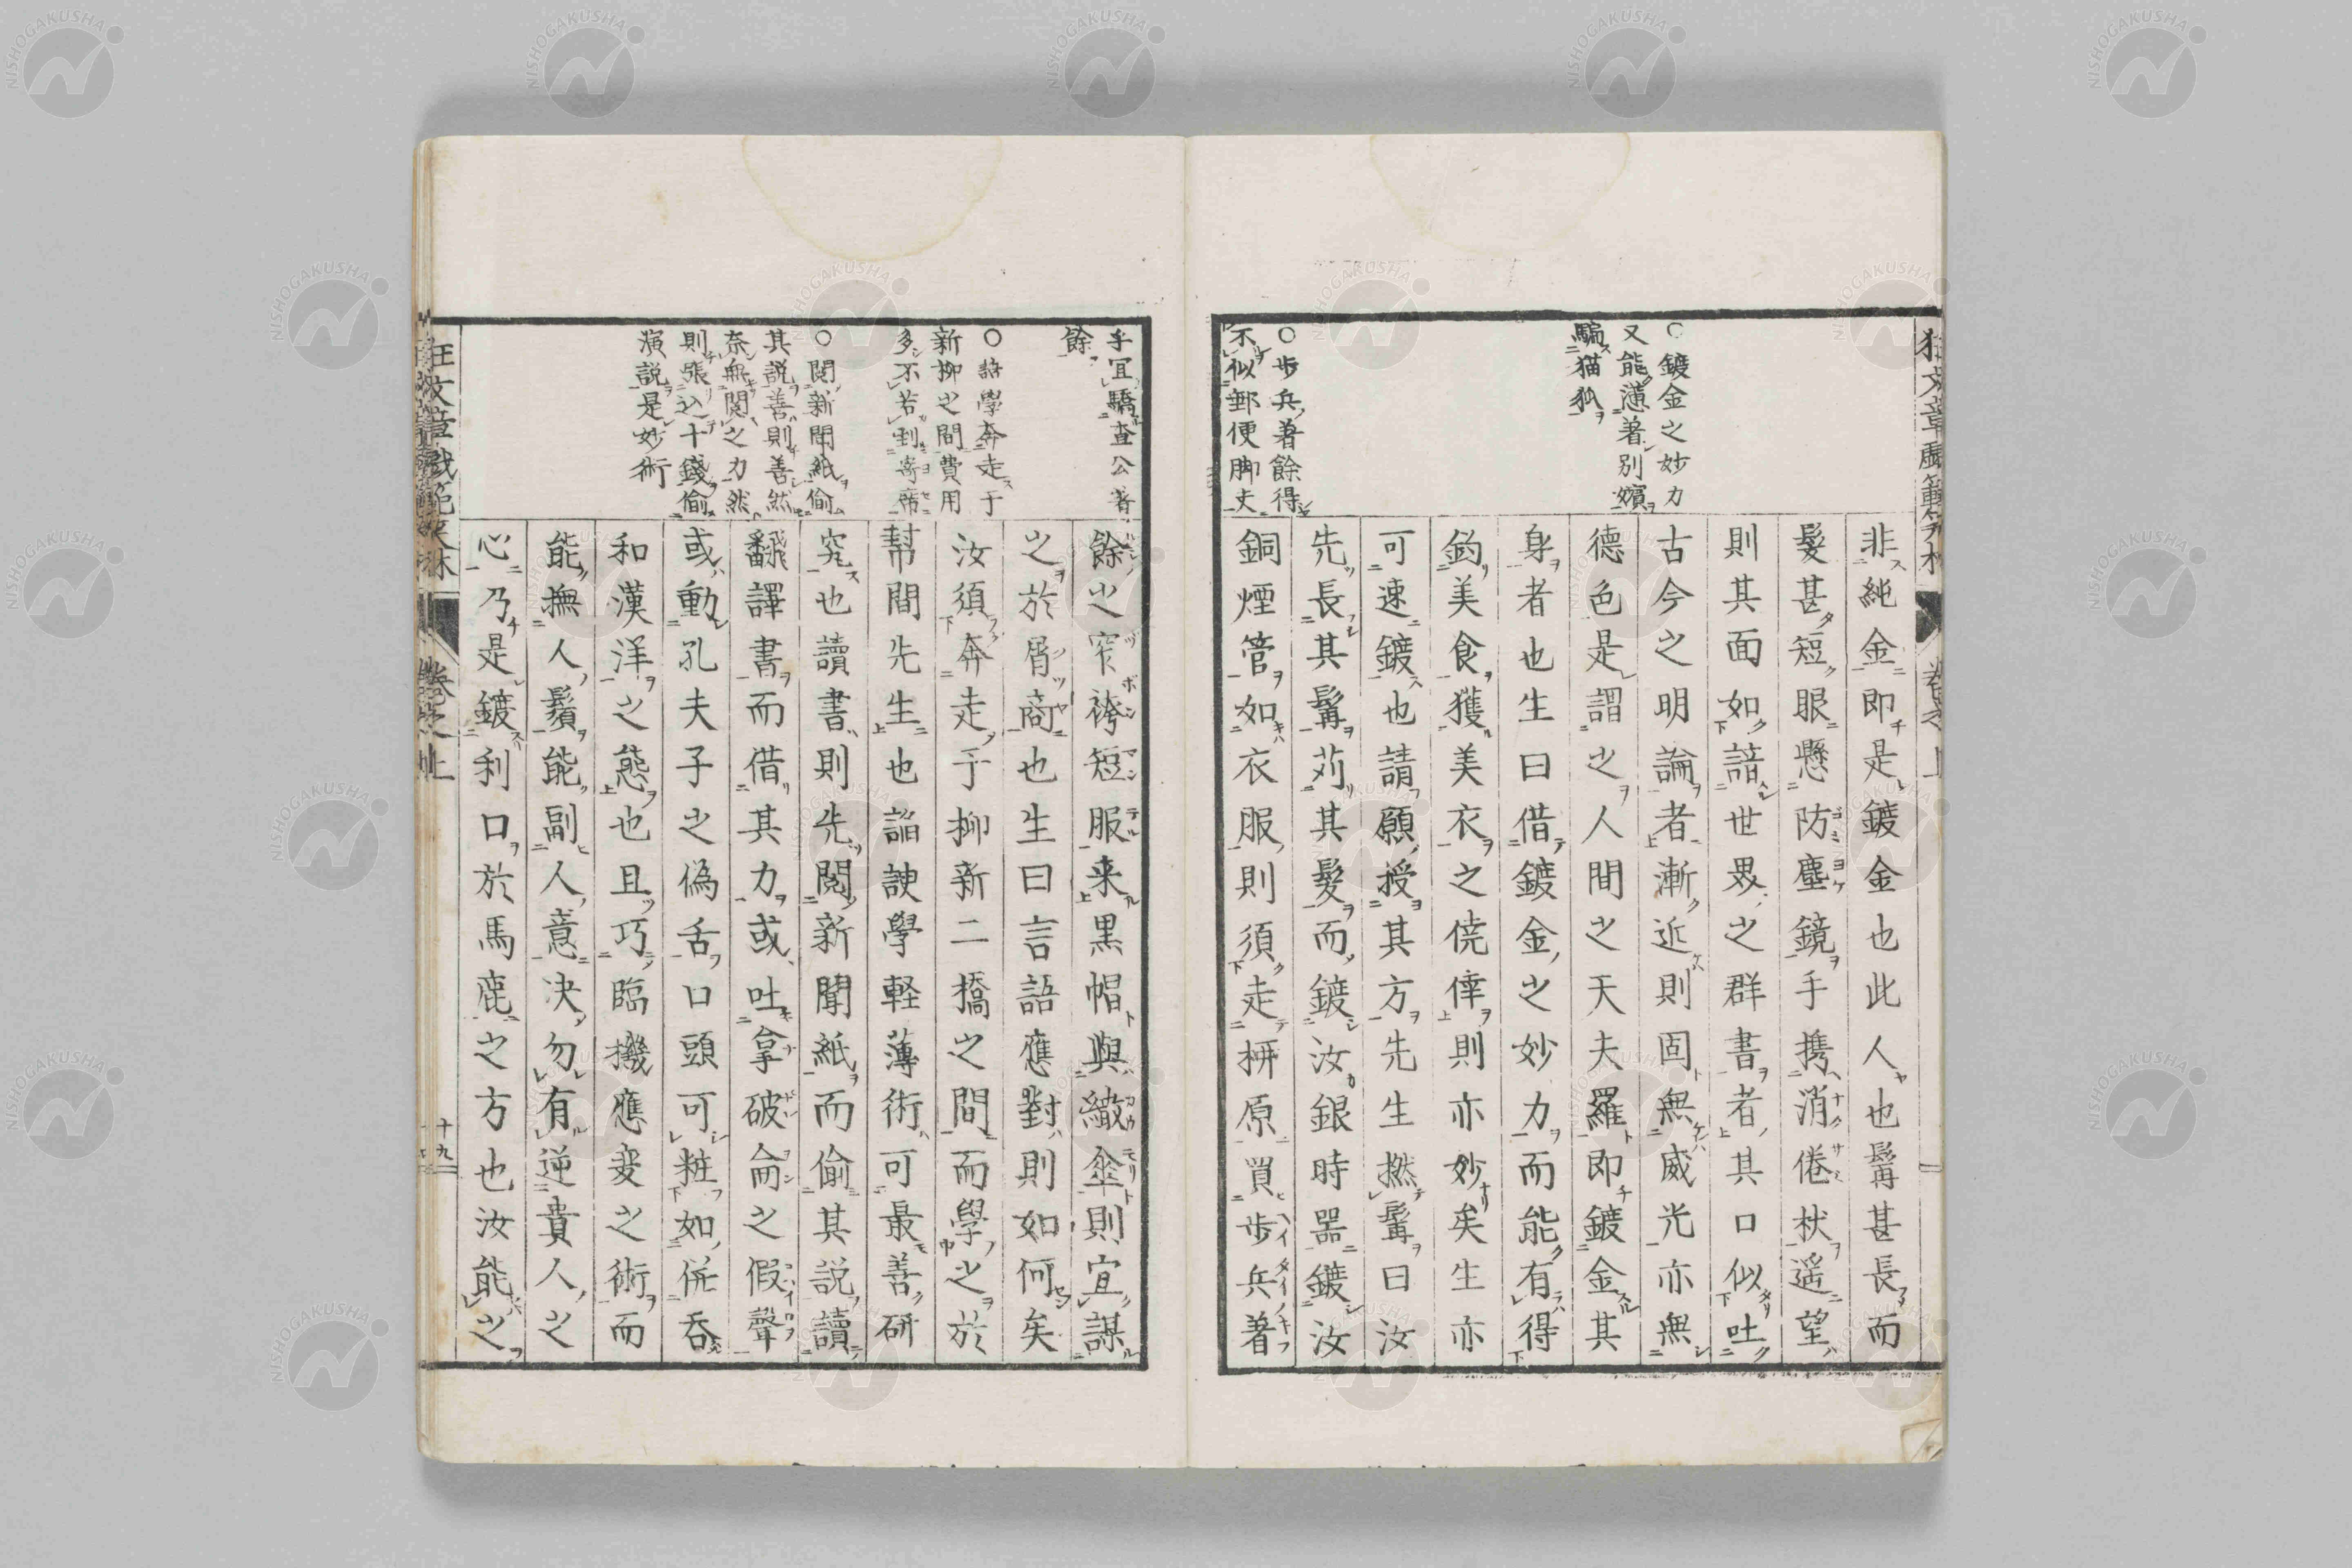 ○鍍金之妙力
又能薄著別嬪
騙猫狐
○歩兵著餘得
不似郵便脚夫
非純金即是鍍金也此人也髯甚長而
髮甚短眼懸防塵鏡手携消倦杖遥望
則其面如諳世界之群書者其口似吐
古今之明論者漸近則固無威光亦無
德色是謂之人間之天夫羅即鍍金其
身者也生曰借鍍金之妙力而能有得
釣美食獲美衣之僥倖則亦妙矣生亦
可速鍍也請願授其方先生撚髯曰汝
先長其髯苅其髮而鍍汝銀時器鍍汝
銅煙管如衣服則須走栟原買歩兵著
乎宜驕査公著
餘
○諂學奔走于
新柳之間費用
多不若到寄席
○閲新聞紙偷
其説善則善然
奈無閲之力然
則張込十錢偷
演説是妙術
餘之窄袴短服来黒帽與繖傘則宜謀
之於屑商也生曰言語應對則如何矣
汝須奔走于柳新二橋之間而學之於
幇間先生也諂諛學軽薄術可最善研
究也讀書則先閲新聞紙而偷其説讀
翻譯書而借其力或吐拿破侖之假聲
或動孔夫子之偽舌口頭可粧如併呑
和漢洋之態也且巧臨機應変之術而
能撫人鬚能副人意决勿有逆貴人之
心乃是鍍利口於馬鹿之方也汝能之
卷之上
十九